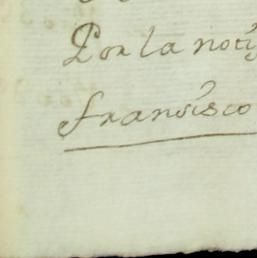 Por la noti
Fransisco